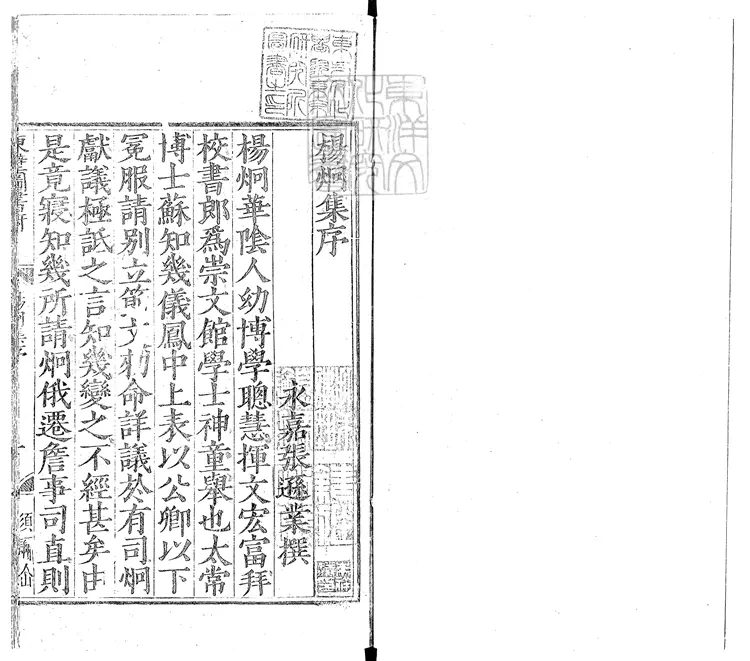 楊炯集序
永嘉張遜業撰
楊炯華陰人幼博學聰慧揮文宏富拜
校書郎為崇文館學士神童舉也太常
博士蘇知幾儀鳳中上表以公卿以下
冕服請別立節文勑命詳議於有司炯
獻議極詆之言知幾變之不經甚矣由
是竟寢知幾所請炯俄遷詹事司直則